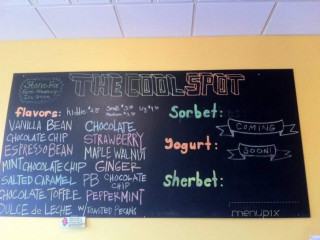 THE COOL SPOT
flavors:
Sorbet:
VANILLA BEAN
CHOCOLATE
COMING
CHOCOLATE CHIP
STRAWBERRY
SOON!
ESPRESSO BEAN
MAPLE WALNUT
Yogurt:
MINT CHOCOLATE CHIP
GINGER
SALTED CARAMEL
PB CHOCOLATE
CHIP
Sherbet:
CHOCOLATE TOFFEE
PEPPERMINT
DULCE de LECHE W/ ROASTED PECANS
menupix